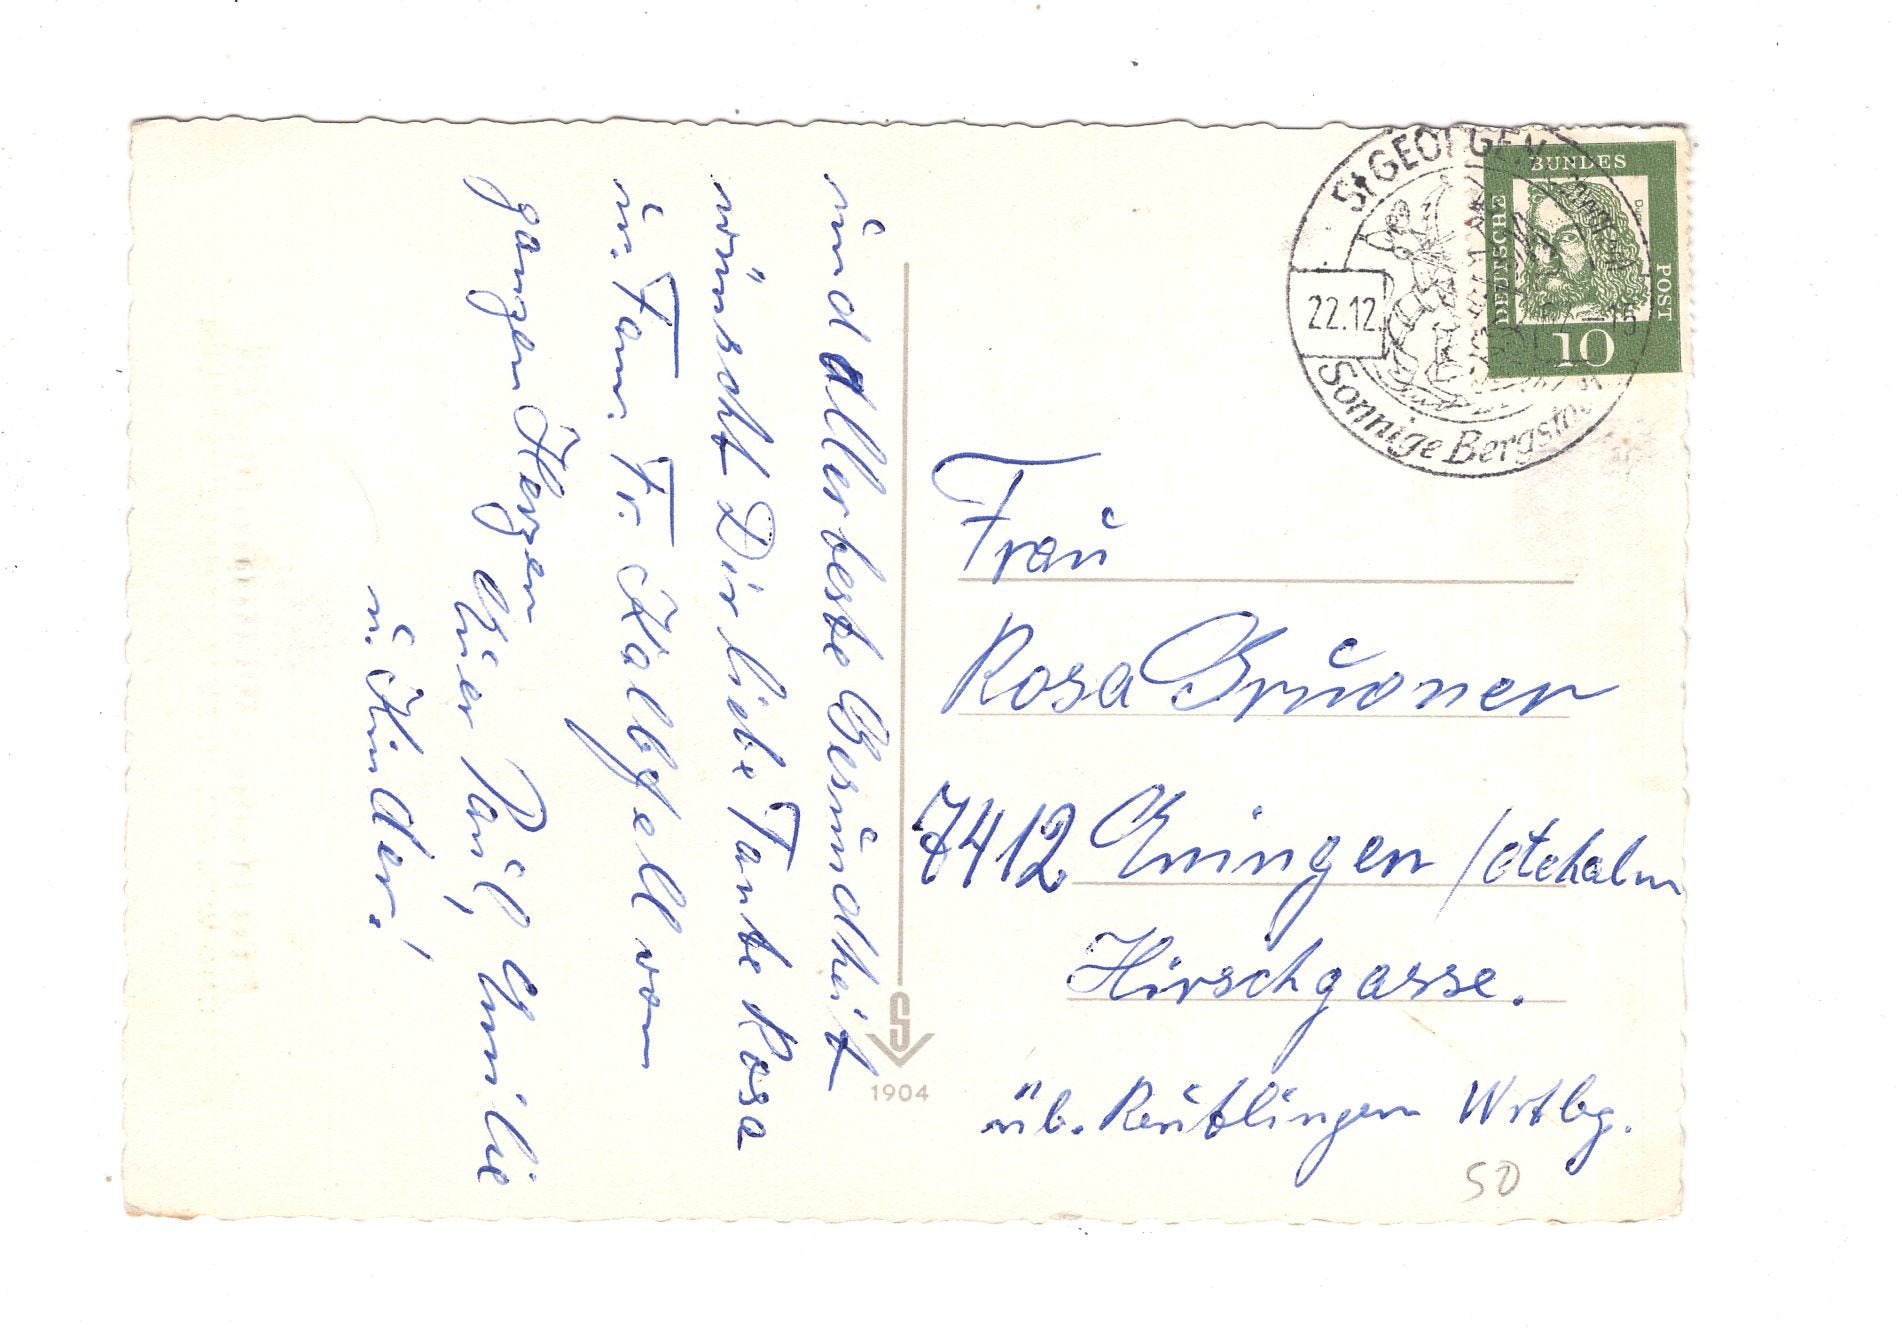 und allerbeste Gesundheit
wünscht Dir liebe Tante Rosa
u. Fam. Fr. Kalbfell von
ganzen Herzen
Euer Paul, Emilie
u. Kinder!
S
1904
St GEORGEN
22.12
-15
Sonnige Bergst
DEUTSCHE
BUNDES
POST
10
Frau
Rosa Brudner
7412 Eningen /Achalm
Hirschgasse.
üb. Reutlingen Wrtbg.
50